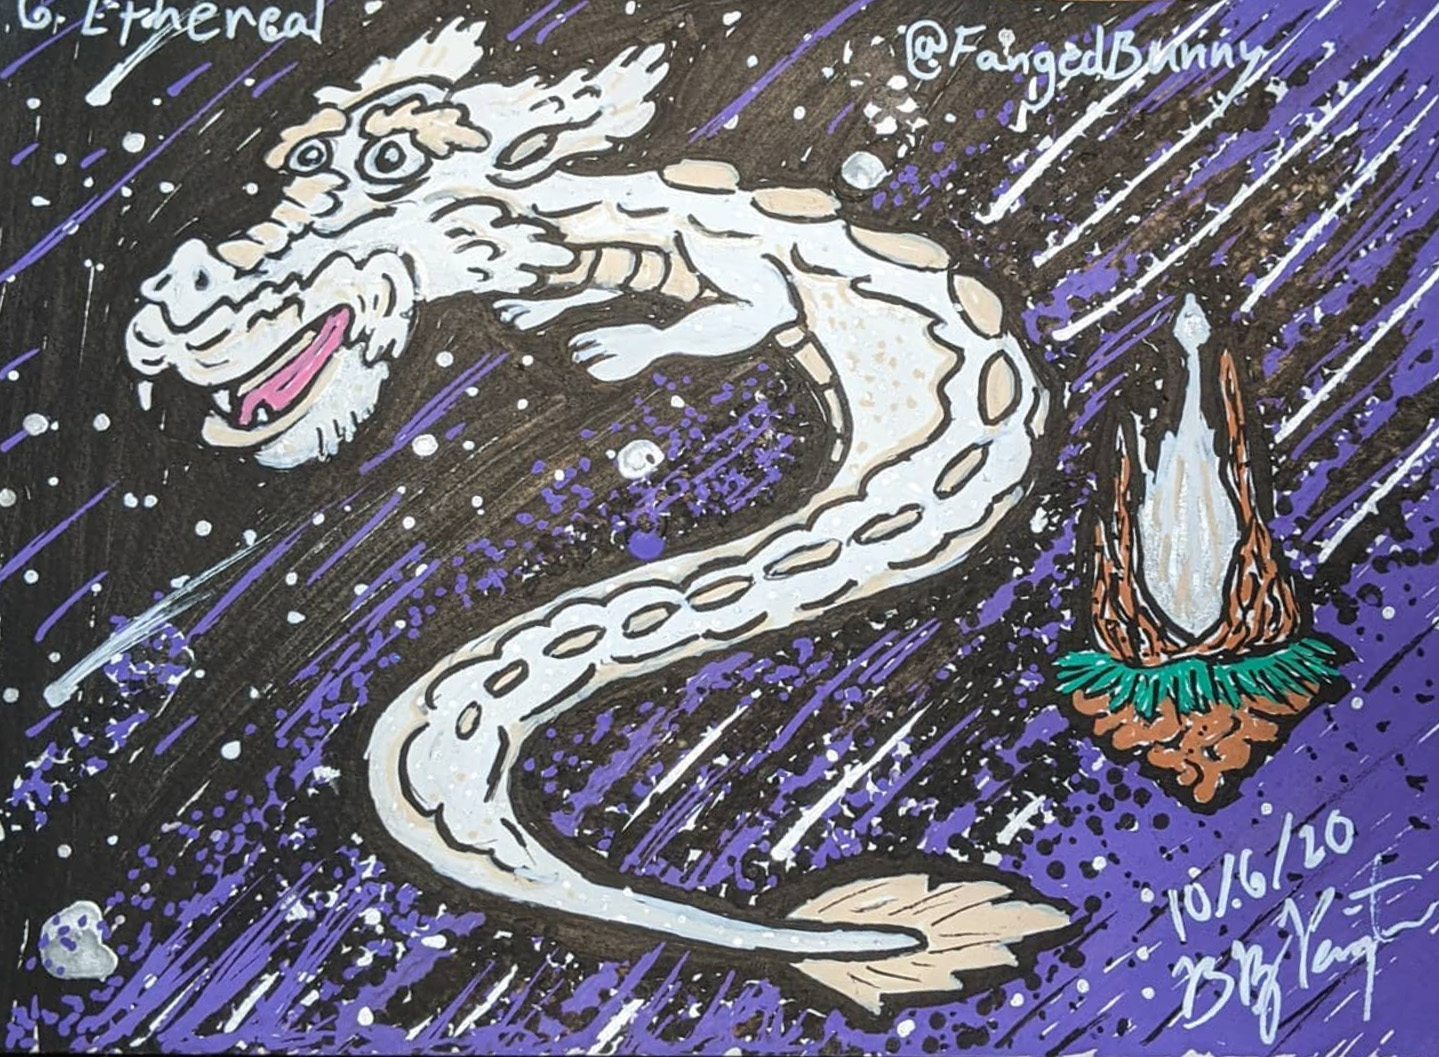 6. Ethereal
@FangedBunny
10/6/20